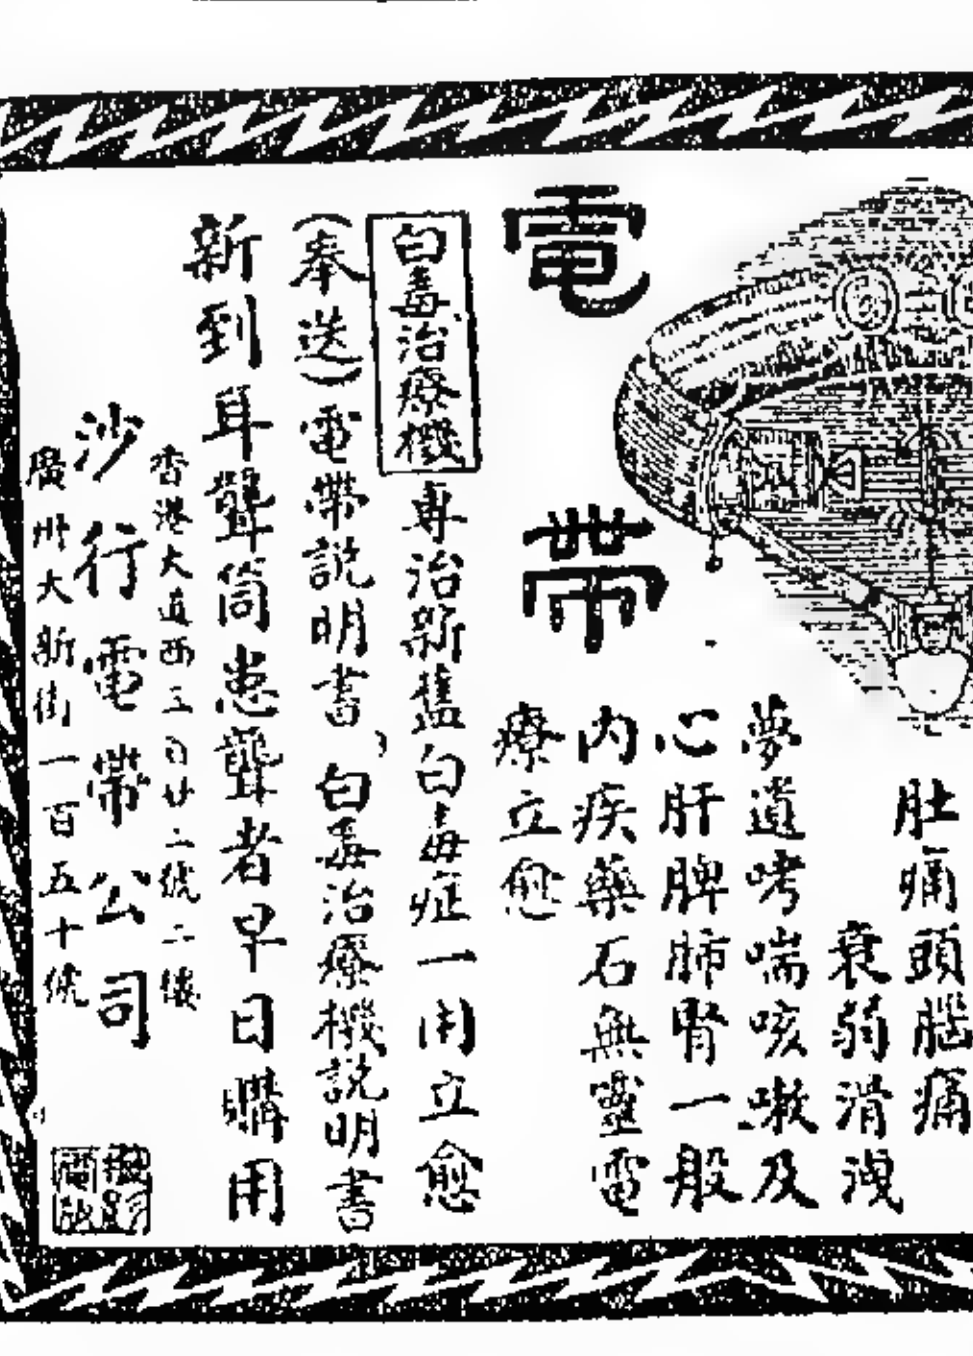 電帶
肚痛頭腦痛
衰弱滑洩
夢遺哮喘咳嗽及
心肝脾肺腎一般
内疾藥石無靈電
療立愈
白毒治療機專治新舊白毒症一用立愈
(奉送)電帶説明書、白毒治療機説明書
新到耳聾筒患聾者早日購用
香港大道西三百廿二號二樓
沙行電帶公司
廣州大新街一百五十號